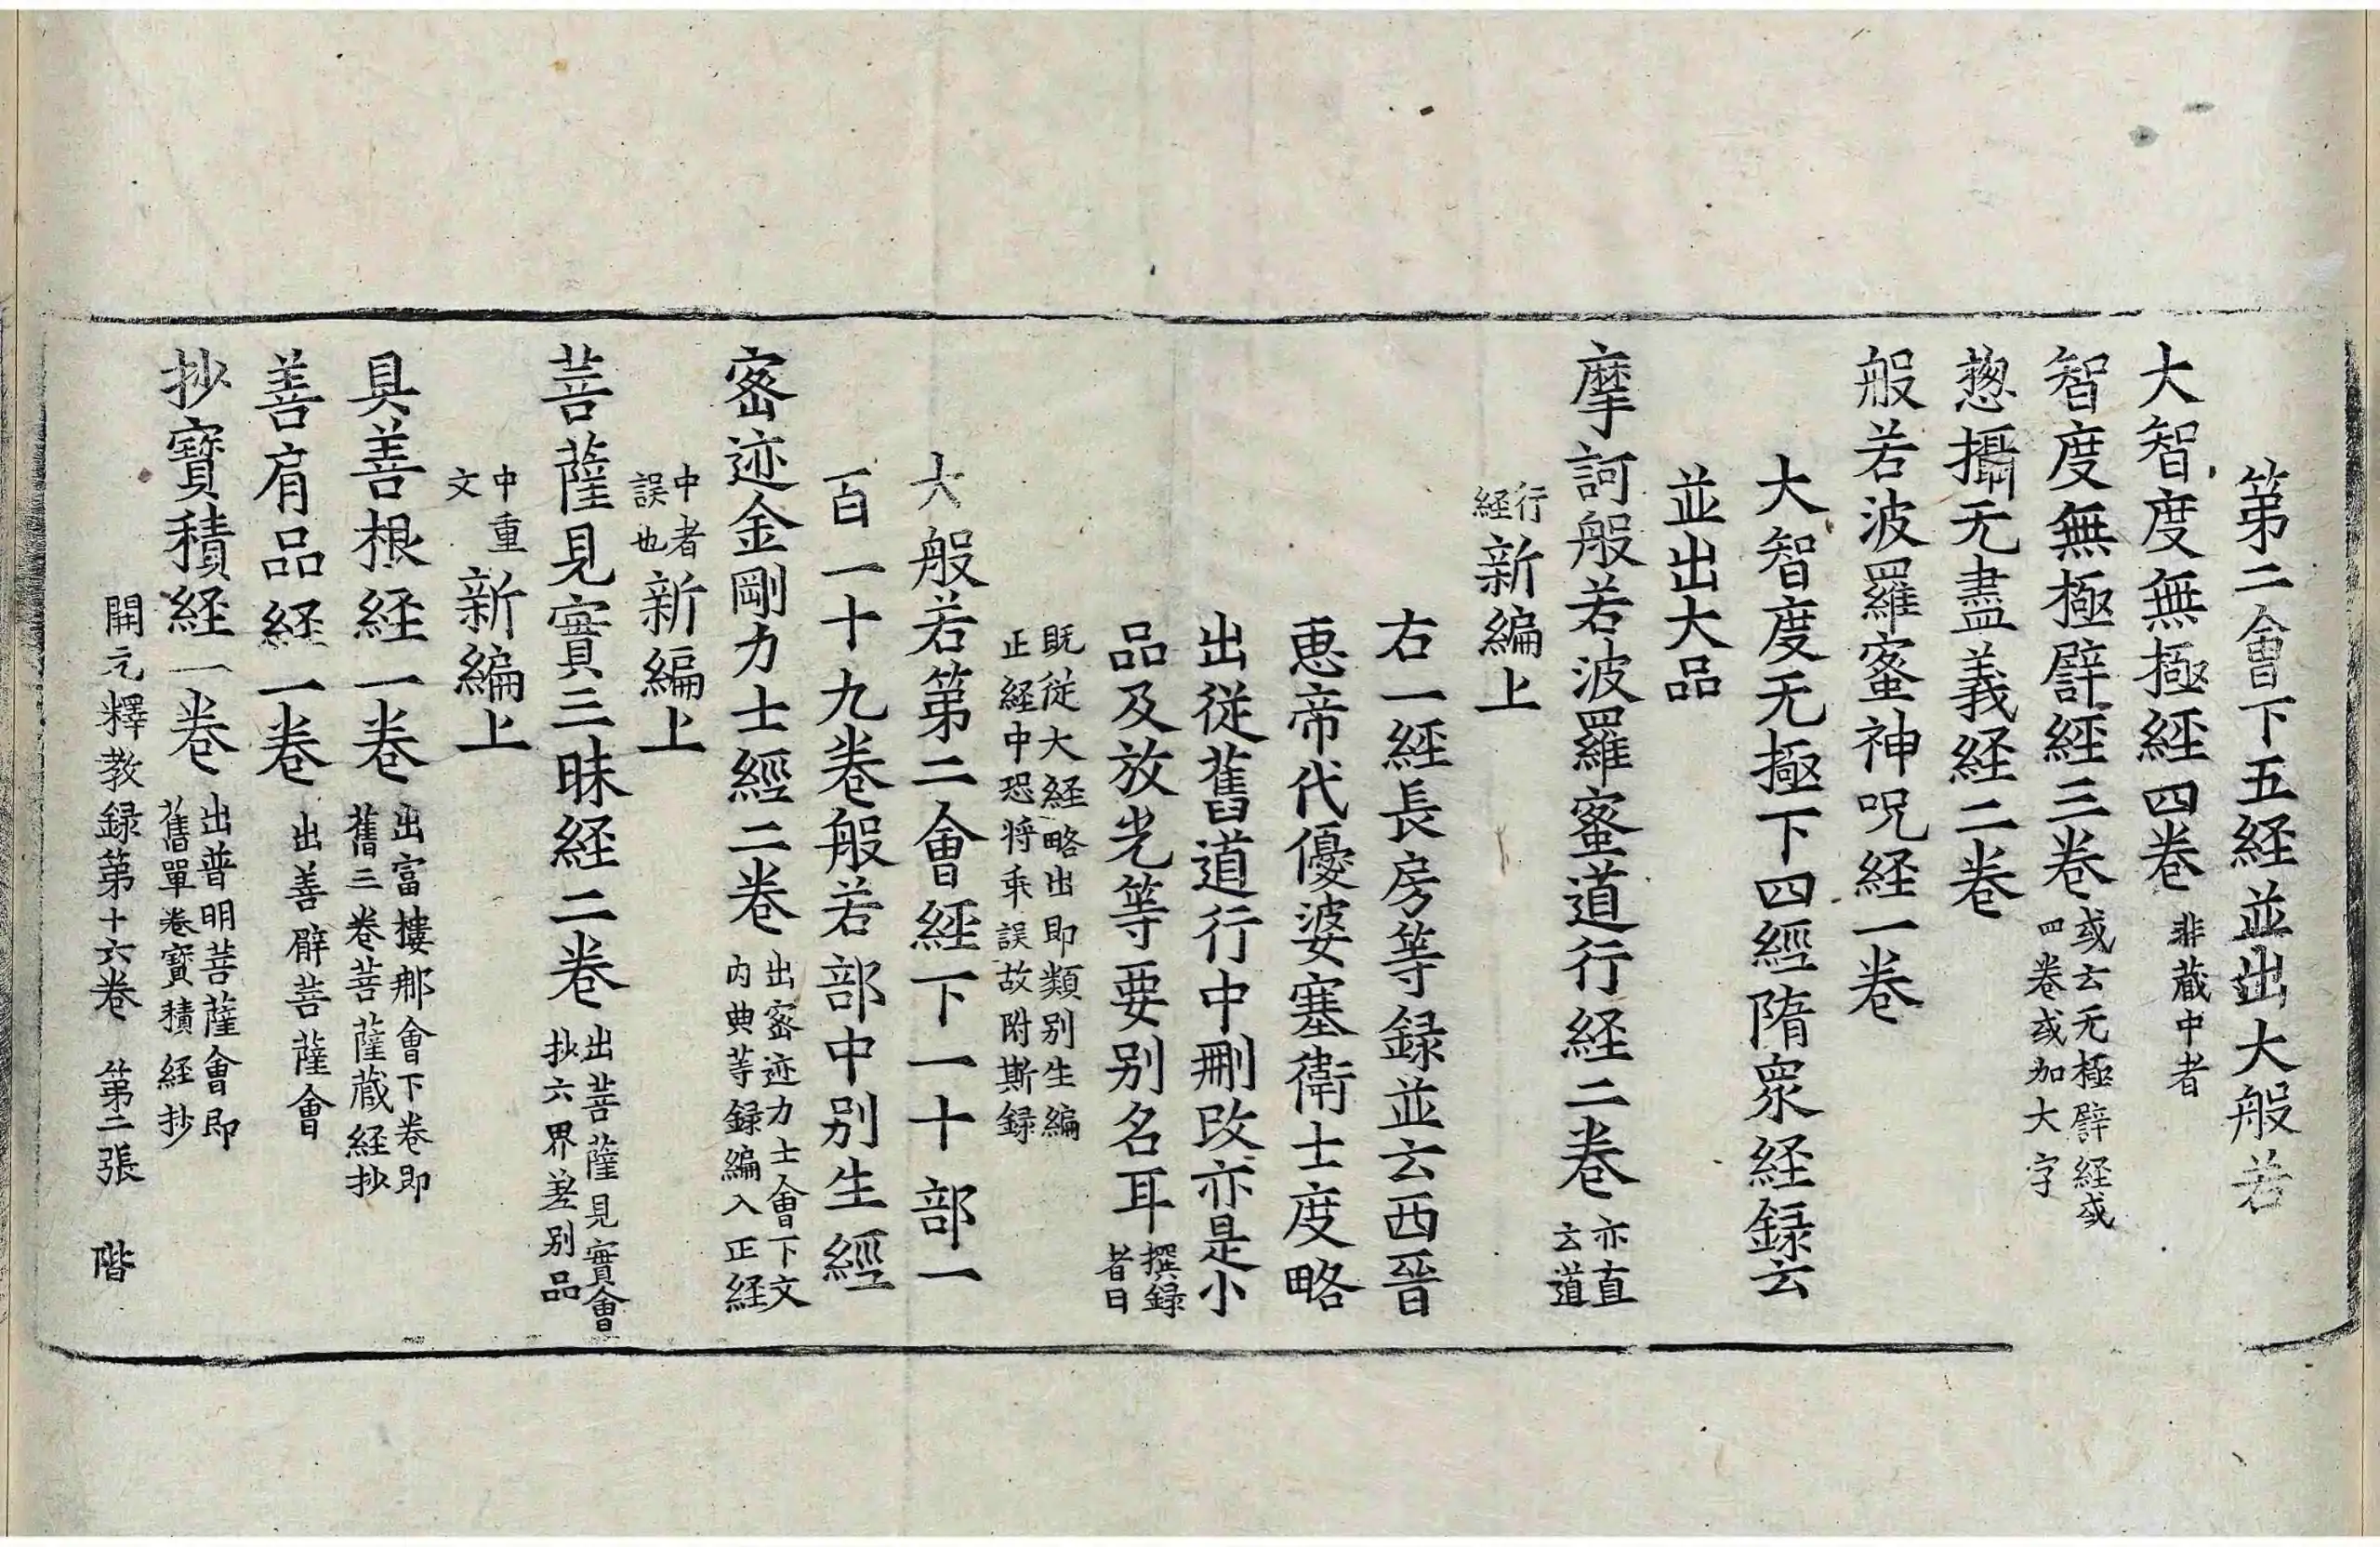 第二會下五経並出大般若
大智度無極經四卷非蔵中者
智度無極譬經三卷或云无極譬経或四卷或加大字
惣攝无盡義経二卷
般若波羅蜜神呪経一卷
大智度无極下四經隋衆経録云
並出大品
摩訶般若波羅蜜道行経二卷亦直云道
行経新編上
右一經長房等録並云西晉
恵帝代優婆塞衛士度略
出従舊道行中刪改亦是小
品及放光等要别名耳撰録者曰
既従大経略出即類别生編
正経中恐将乖誤故附斯録
大般若第二會經下一十部一
百一十九卷般若部中别生經
宻迹金剛力士經二卷出宻迹力士會下文内典等録編入正経
中者誤也新編上
菩薩見實三昧経二卷出菩薩見實會抄六界差别品
中重文新編上
具善根経一卷出富樓那會下卷即舊三卷菩薩蔵経抄
善肩品経一卷出善臂菩薩會
抄寶積経一卷出普明菩薩會即舊單卷寶積経抄
開元釋教録第十六卷　第二張　階